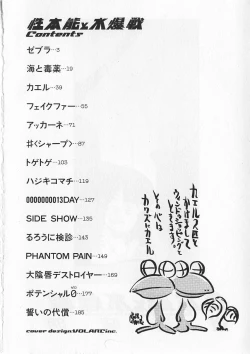 性本能と水爆戦
Contents
ゼブラ…3
海と毒薬…19
カエル…39
フェイクファー…55
アッカーネ…71
#〈シャープ〉…87
トゲトゲ…103
ハジキコマチ…119
0000000013DAY…127
SIDE SHOW…135
るろうに検診…143
PHANTOM PAIN…149
大陰唇デストロイヤー…169
ポテンシャル0…177
誓いの代償…185
カエルス匹を
かけまして
ウィンドウショッピングと
ときまする
その心は
カワズニカエル
cover design:VOLAREinc.